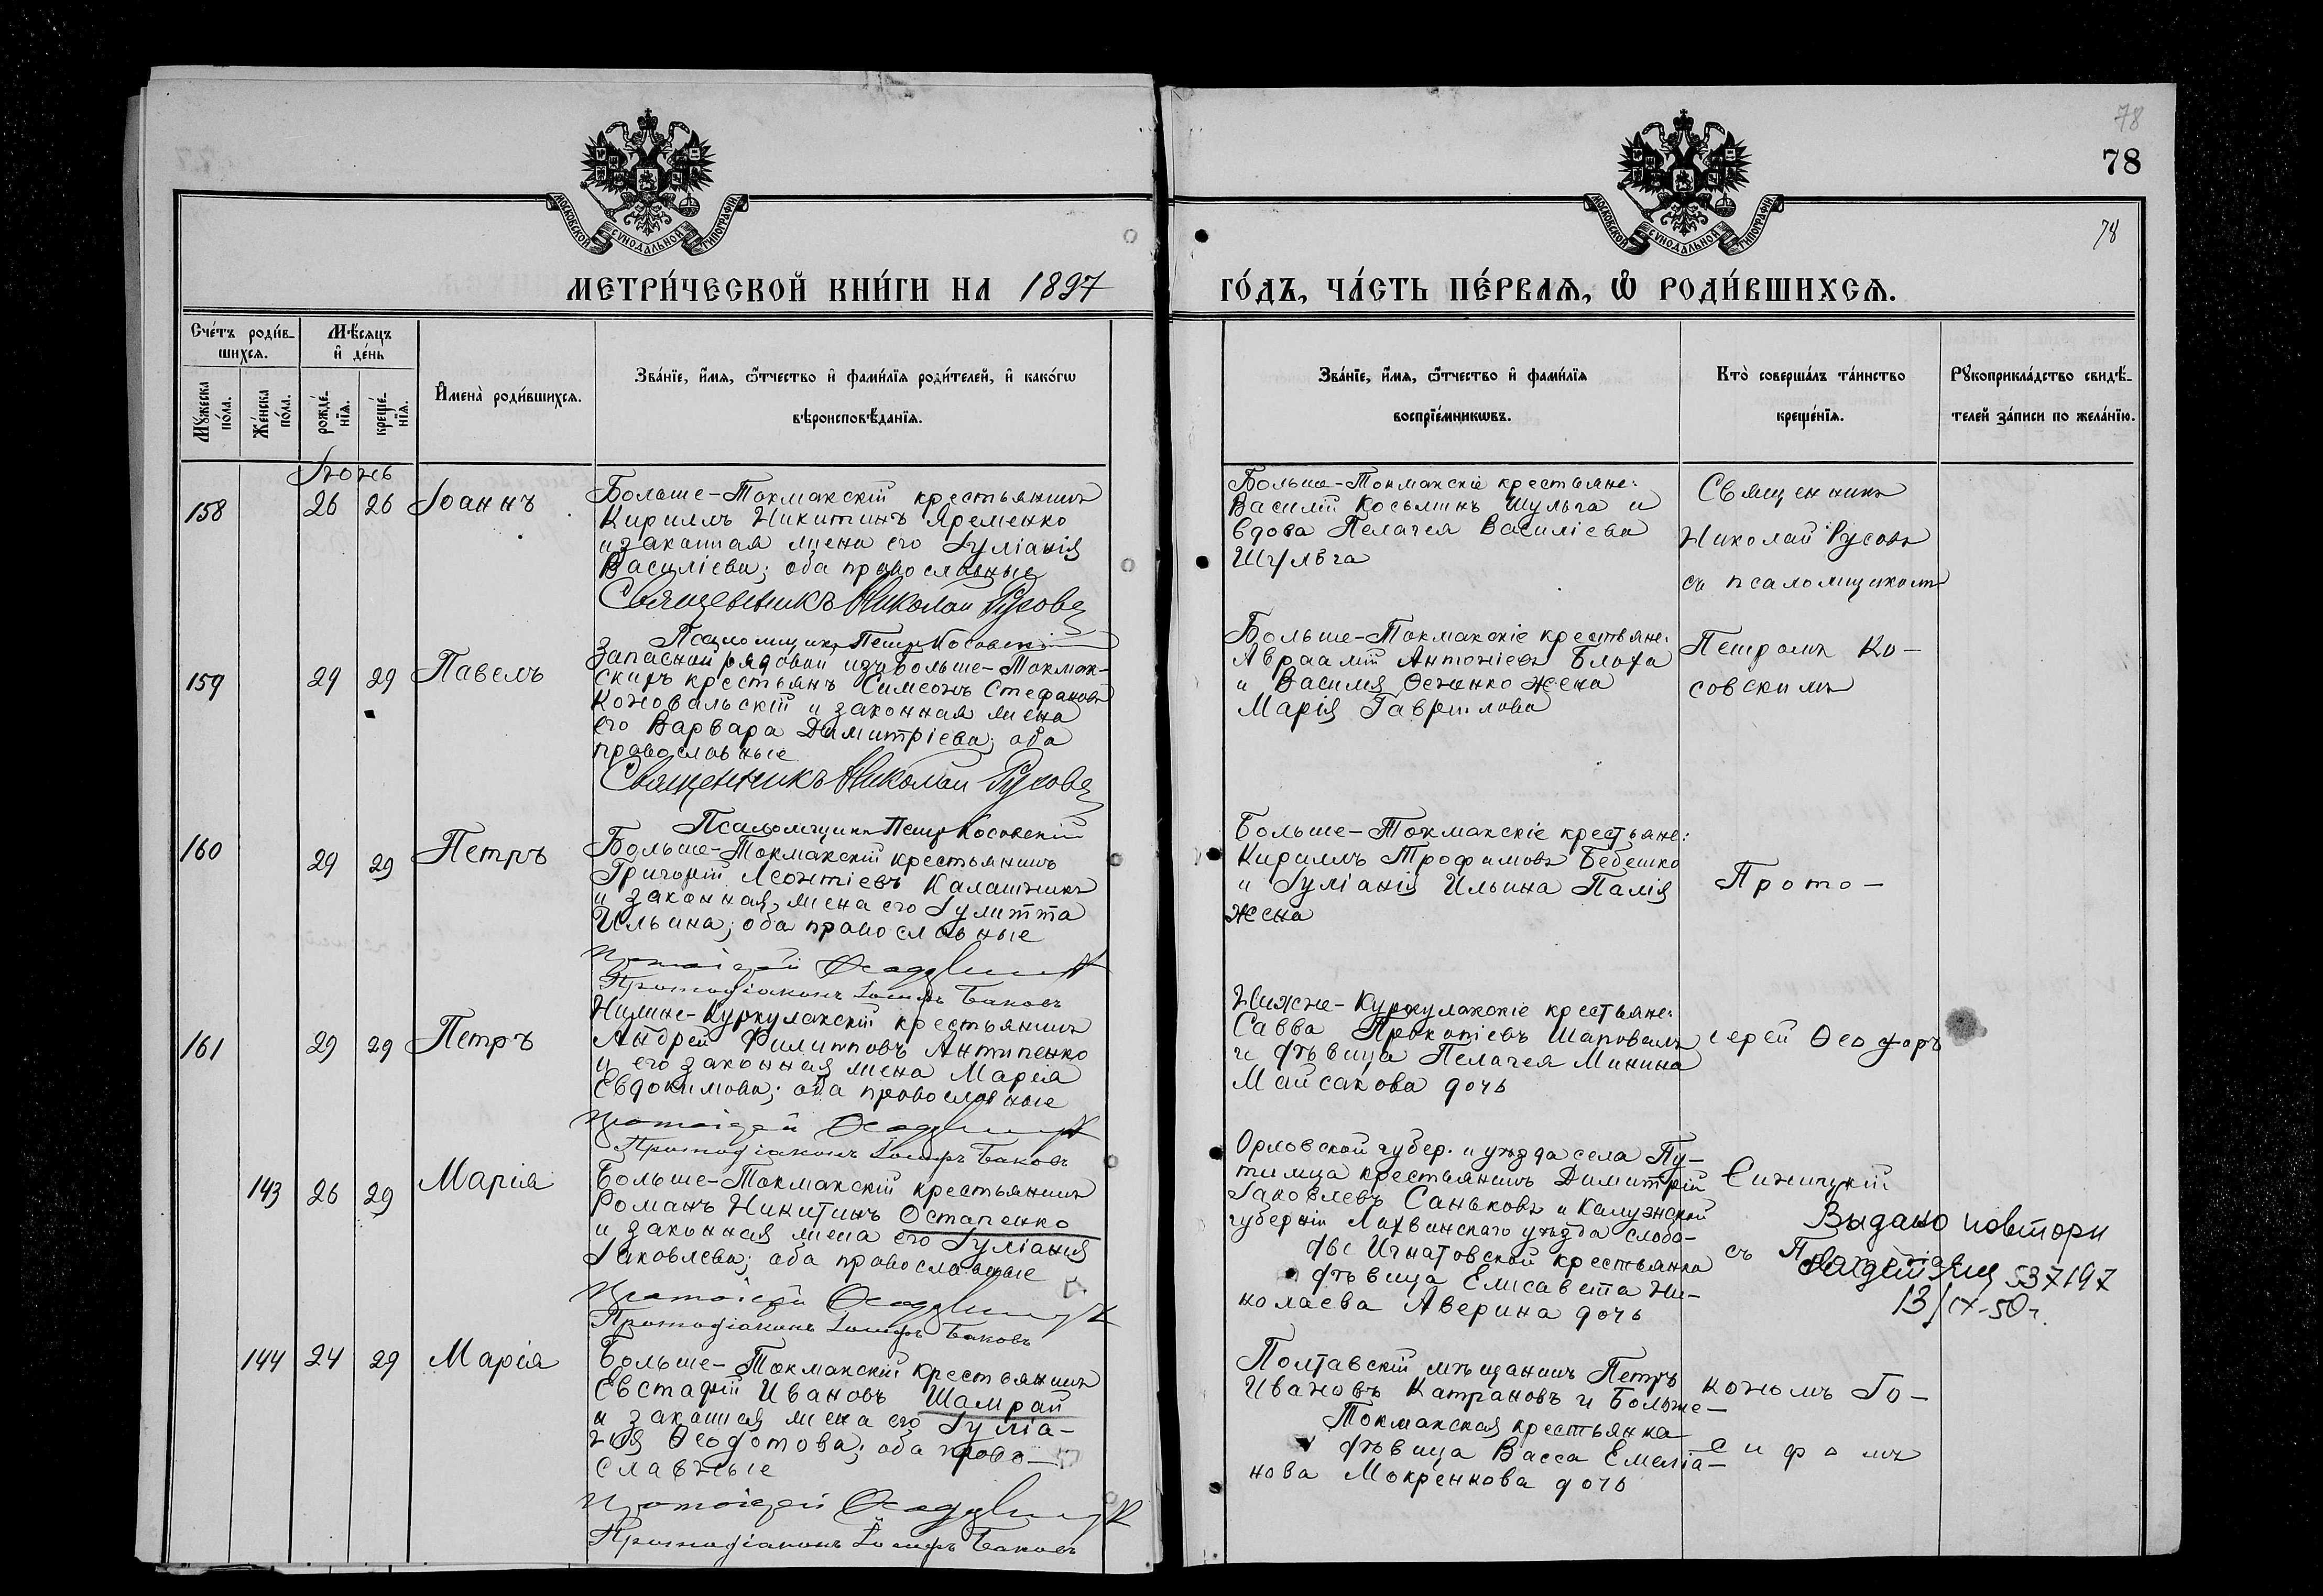 78
78
78
МОСКОВСКОЙ СУНОДАЛЬНОЙ ТИПОГРАФІИ
МОСКОВСКОЙ СУНОДАЛЬНОЙ ТИПОГРАФІИ
МЕТРИ́ЧЕСКОЙ КНИ́ГИ НА 1897
ГО́ДЪ, ЧА́СТЬ ПЕ́РВАѦ, Ѡ РОДИ́ВШИХСѦ.
Сче́тъ роди́в-
шихсѧ.
Мѣ́сѧцъ
и҆ де́нь
Мꙋ́жеска
по́ла.
Же́нска
по́ла.
рожде́-
нїѧ.
креще́-
нїѧ.
И҆мена̀ роди́вшихсѧ.
Зва́нїе, и҆́мѧ, ѻ҆́тчество и҆ фами́лїѧ роди́телей, и҆ како́гѡ
вѣроисповѣ́данїѧ.
Зва́нїе, и҆́мѧ, ѻ҆́тчество и҆ фами́лїѧ
воспрїе́мникѡвъ.
Кто̀ соверша́лъ та́инство
креще́нїѧ.
Рꙋкоприкла́дство свидѣ́-
телей за́писи по жела́нїю.
Іюнь
158 26 26 Іоаннъ
Больше-Токмакскій крестьянинъ
Кириллъ Никитинъ Яременко
и законная жена его Іуліанія
Василіева; оба православные
Священникъ Николай Русовъ
Псаломщикъ Петръ Косовскій
Больше-Токмакскіе крестьяне:
Василій Косьминъ Шульга и
вдова Пелагея Василіева
Шульга
Священникъ
Николай Русовъ
съ псаломщикомъ
159 29 29 Павелъ
Запасной рядовой изъ больше-Токмак-
скихъ крестьянъ Симеонъ Стефановъ
Коновальскій и законная жена
его Варвара Димитріева; оба
православные
Священникъ Николай Русовъ
Псаломщикъ Петръ Косовскій
Больше-Токмакскіе крестьяне:
Авраамій Антоніевъ Блоха
и Василія жена
Марія Гаврилова
Петромъ Ко-
совскимъ
160 29 29 Петръ
Больше-Токмакскій крестьянинъ
Григорій Леонтіевъ Калашникъ
и законная жена его Іулитта
Ильина; оба православные
Протоіерей
Протодіаконъ Іосифъ Баковъ
Больше-Токмакскіе крестьяне:
Кириллъ Трофимовъ Бебешко
и Іуліанія Ильина Палія
жена
Прото-
161 29 29 Петръ
Нижне-Куркулакскій крестьянинъ
Андрей Филипповъ Антипенко
и его законная жена Марія
Евдокимова; оба православные
Протоіерей
Протодіаконъ Іосифъ Баковъ
Нижне-Куркулакскіе крестьяне:
Савва Прокопіевъ Шаповалъ
и дѣвица Пелагея Минина
Майсакова дочь
іерей Ѳеодоръ
143 26 29 Марія
Больше-Токмакскій крестьянинъ
Романъ Никитинъ Остапенко
и законная жена его Іуліанія
Іаковлева; оба православные
Протоіерей
Протодіаконъ Іосифъ Баковъ
Орловской губер. и уѣзда села Пу-
тимца крестьянинъ Димитрій
Іаковлевъ Саньковъ и Калужской
губерніи Лихвинскаго уѣзда слобо-
ды Игнатовской крестьянка
дѣвица Елисавета Ни-
колаева Аверина дочь
Синицкій
съ
Выдано повторн
537197
13/IX-50г.
144 24 29 Марія
Больше-Токмакскій крестьянинъ
Евстафій Ивановъ Шамрай
и законная жена его Іуліа-
нія Ѳеодотова; оба право-
славные
Протоіерей
Протодіаконъ Іосифъ Баковъ
Полтавскій мѣщанинъ Петръ
Ивановъ Катрановъ и Больше-
Токмакская крестьянка
дѣвица Васса Емеліа-
нова Мокренкова дочь
кономъ Іо-
сифомъ